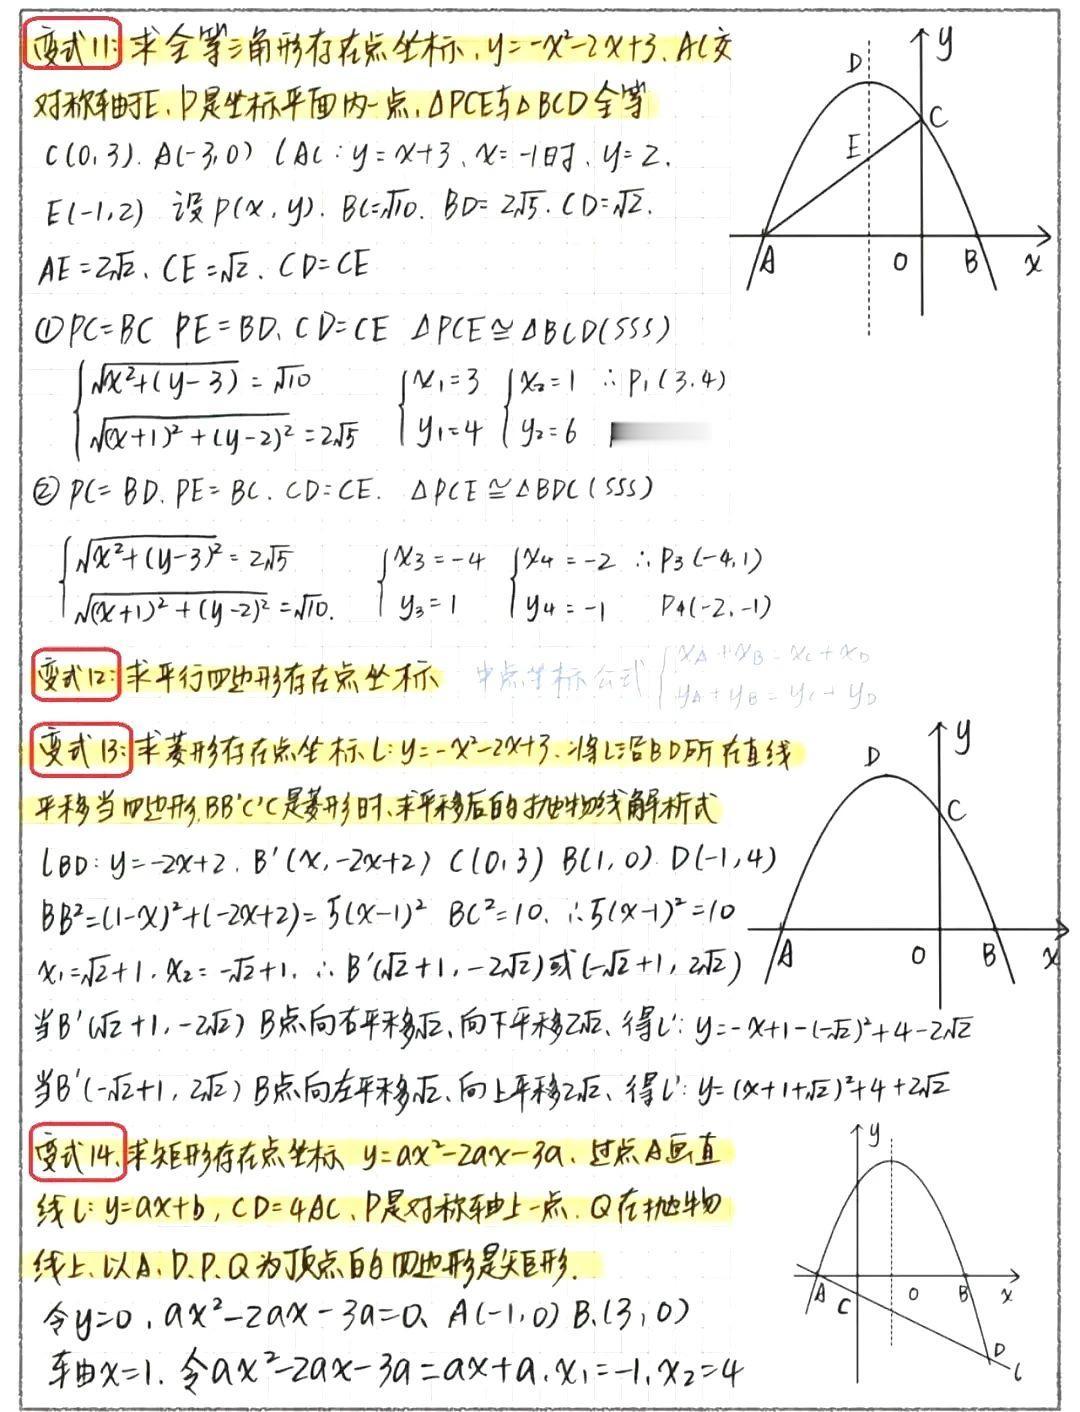 变式11: 求全等三角形存在点坐标, y=-x²-2x+3. AC交
对称轴于E, P是坐标平面内一点, △PCE与△BCD全等
C(0,3). A(-3,0) lAC: y=x+3, x=-1时, y=2.
E(-1,2) 设P(x,y). BC=√10. BD=2√5. CD=√2.
AE=2√2, CE=√2. CD=CE
①PC=BC PE=BD, CD=CE △PCE≌△BCD(SSS)
{√(x²+(y-3)) = √10 {x₁=3 {x₂=1 ∴P₁(3.4)
√((x+1)²+(y-2)²) = 2√5 y₁=4 y₂=6
②PC=BD. PE=BC. CD=CE. △PCE≌△BDC(SSS)
{√(x²+(y-3)²) = 2√5 {x₃=-4 {x₄=-2 ∴P₃(-4,1)
√((x+1)²+(y-2)²) = √10. y₃=1 y₄=-1 P₄(-2,-1)
变式12: 求平行四边形存在点坐标 中点坐标公式 {xA+xB=xC+xD
yA+yB=yC+yD
变式13: 求菱形存在点坐标L: y=-x²-2x+3. 将L沿BD所在直线
平移当四边形BB'C'C是菱形时, 求平移后的抛物线解析式
lBD: y=-2x+2. B'(x,-2x+2) C(0,3) B(1,0) D(-1,4)
BB²=(1-x)²+(-2x+2)=5(x-1)² BC²=10, ∴5(x-1)²=10
x₁=√2+1. x₂=-√2+1, ∴B'(√2+1,-2√2)或(-√2+1,2√2)
当B'(√2+1,-2√2) B点向右平移√2, 向下平移2√2, 得L': y=-x+1-(-√2)²+4-2√2
当B'(-√2+1,2√2) B点向左平移√2, 向上平移2√2, 得L': y=(x+1+√2)²+4+2√2
变式14. 求矩形存在点坐标 y=ax²-2ax-3a, 过点A画直
线l: y=ax+b, CD=4AC, P是对称轴上一点, Q在抛物
线上, 以A.D.P.Q为顶点的四边形是矩形.
令y=0, ax²-2ax-3a=0, A(-1,0) B(3,0)
轴x=1. 令ax²-2ax-3a=ax+a, x₁=-1, x₂=4
y
D
C
E
A
O
B
x
y
D
C
A
O
B
x
y
A
C
O
B
x
D
l